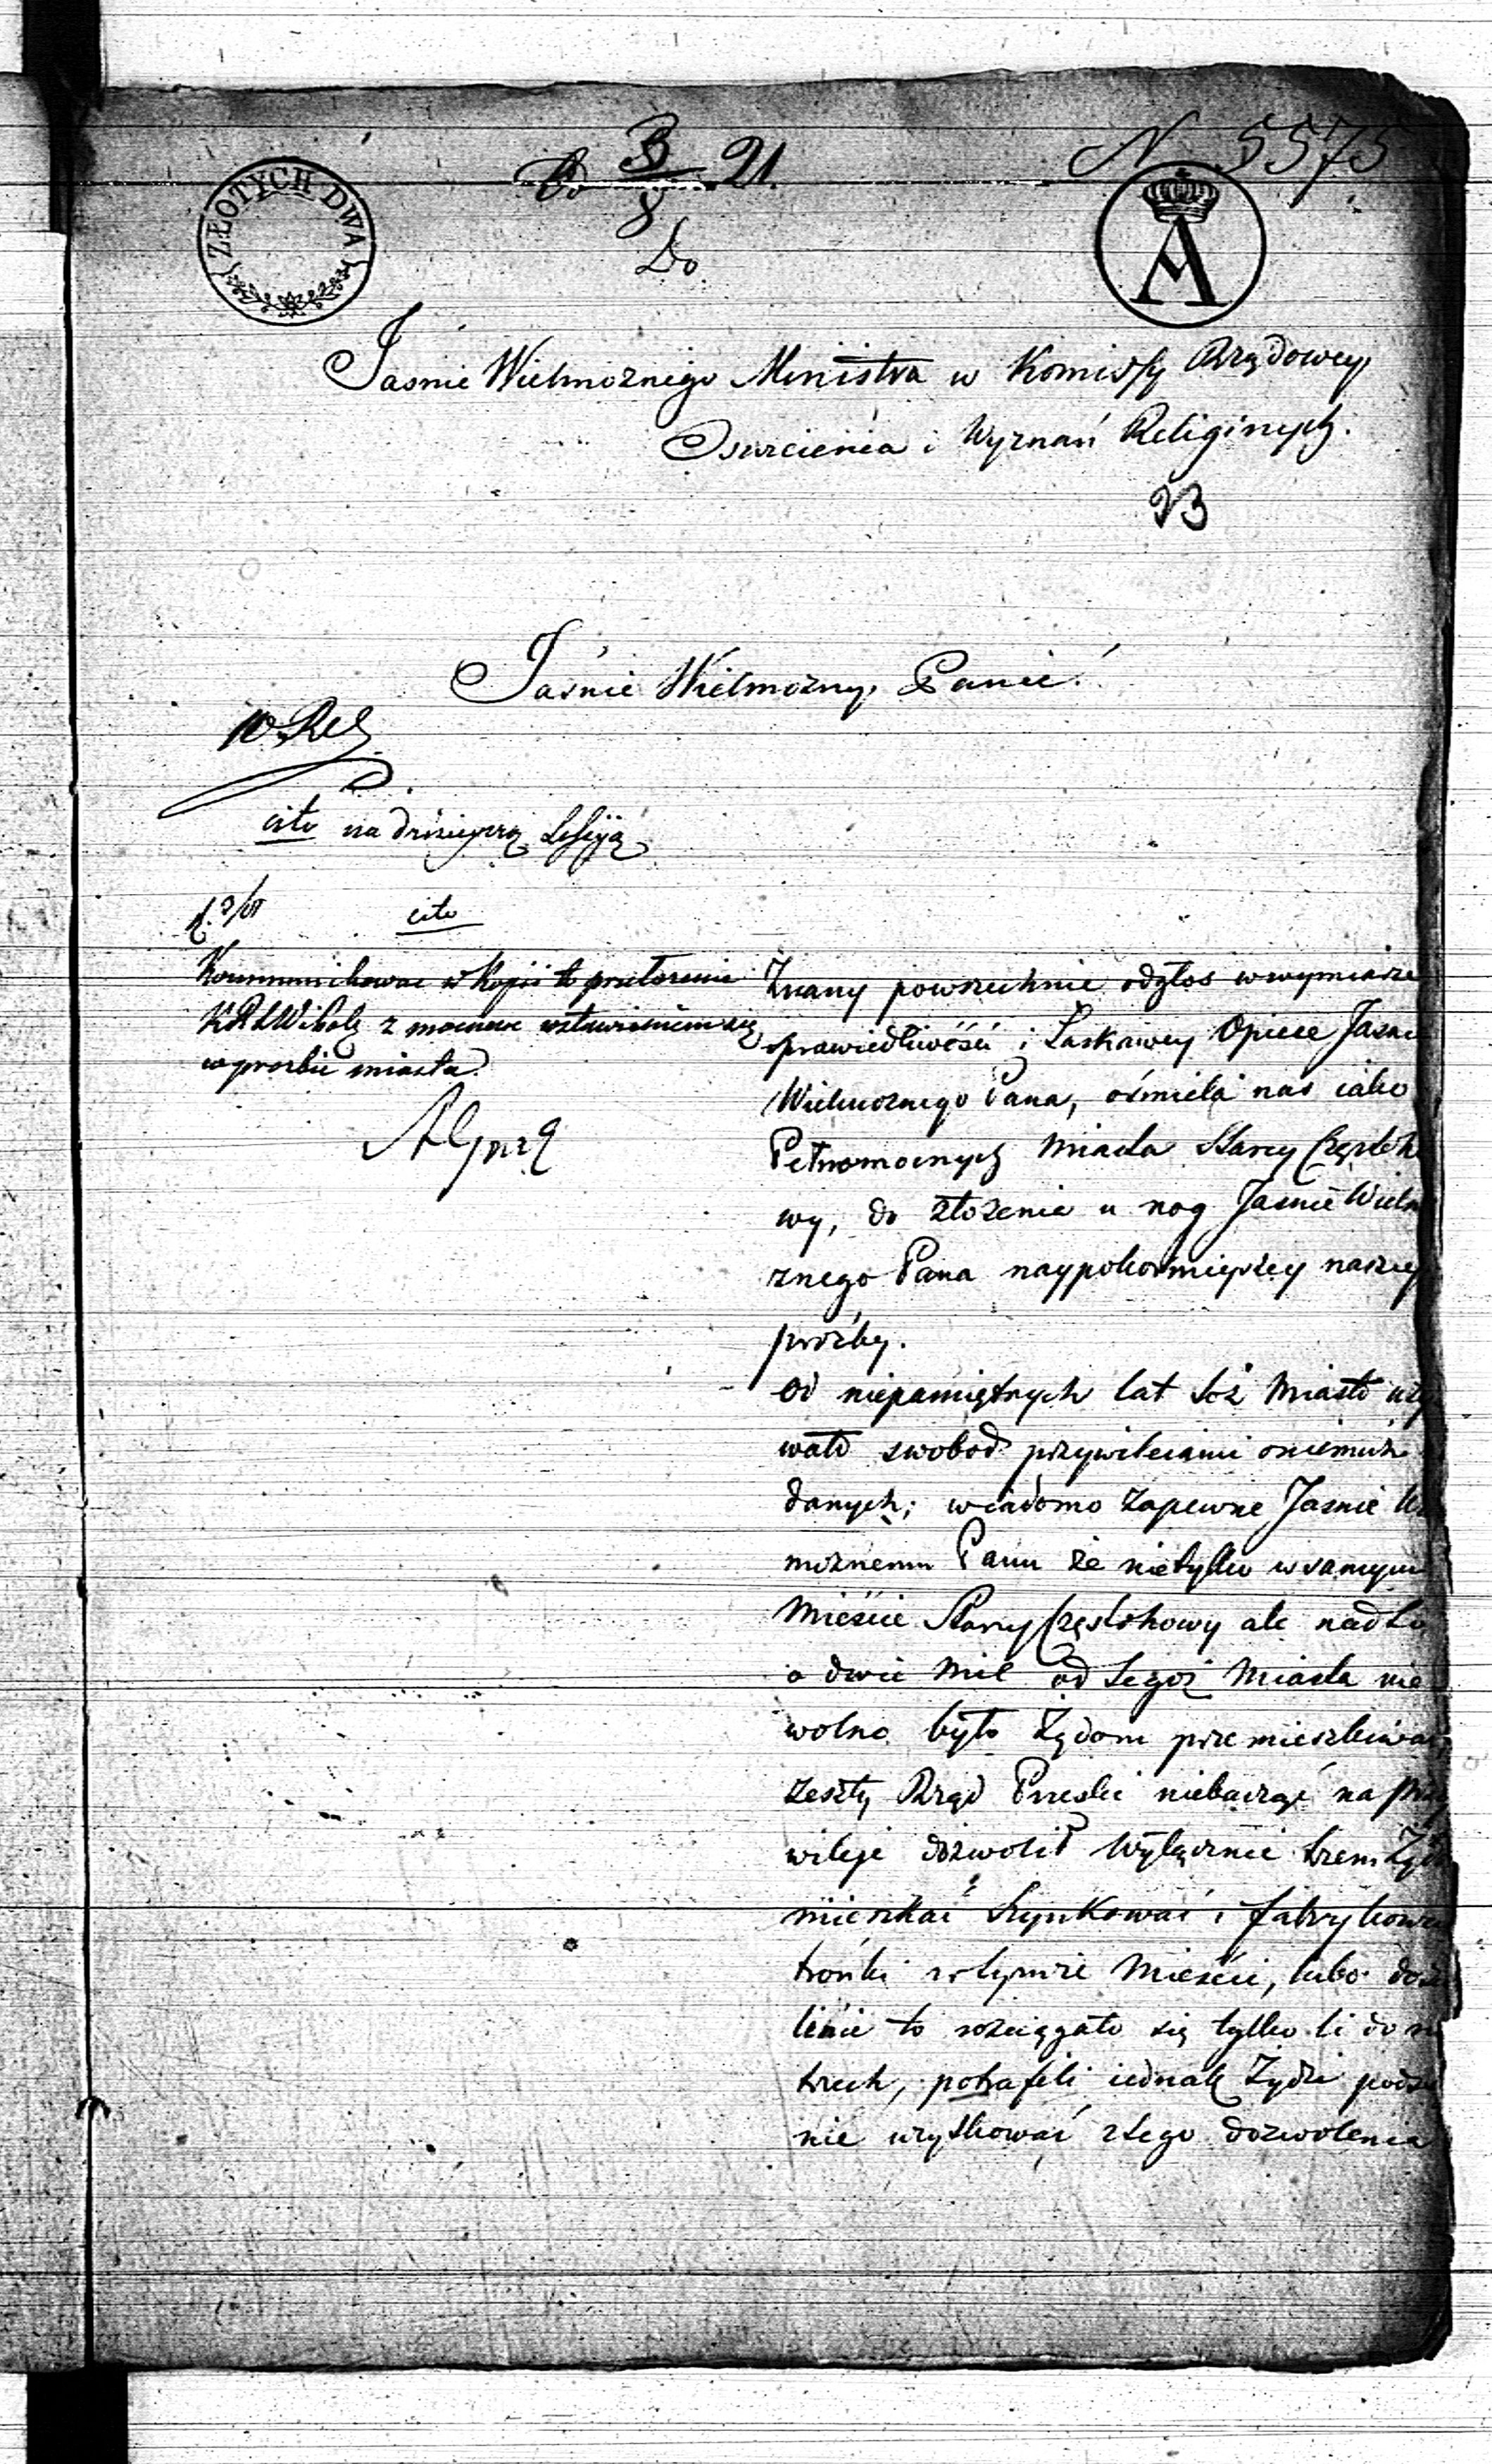 N 5575
3/8 21.
ZŁOTYCH DWA
A
Do
Jasnie Wielmożnego Ministra w Komissyi Rządowey
Oswicenia i Wyznań Religinych.
23
Jaśnie Wielmożny Panie!
W. Rel
cito na dzisieyszą Sessyją
cito
Kommunikować w Kopii to przełożenie
z mocnem wstawieniem się
w prozbie miasta.
Znany powszechnie odgłos w wymiarze
sprawiedliwości i Łaskawey Opiece Jasnie
Wielmożnego Pana, ośmiela nas iako
Pełnomocnych Miasta Starey Częstoch
wy, do złożenia u nog Jasnie Wielm
żnego Pana naypokornieyszey naszey
proźby.
Od niepamiętnych lat toż Miasto uży
wało swobod przywileiami oniemuż
danych; wiadomo zapewne Jasnie Wi
możnemu Panu że nietylko w samym
Mieście Starey Częstohowy ale nadto
o dwie Mil od tegoż Miasta nie
wolno było Żydom przemieszkiwać,
zeszły Rząd Pruski niebacząc na Przy
wileje dozwolił Wyłącznie trzem Żydo
mieszkać Szynkować i fabrykować
trónki w tymże Mieście, lubo dozw
lenie to rozciągało się tylko li do
trzech, potrafili iednak Żydzi podst
nie uzyskować z tego dozwolenia